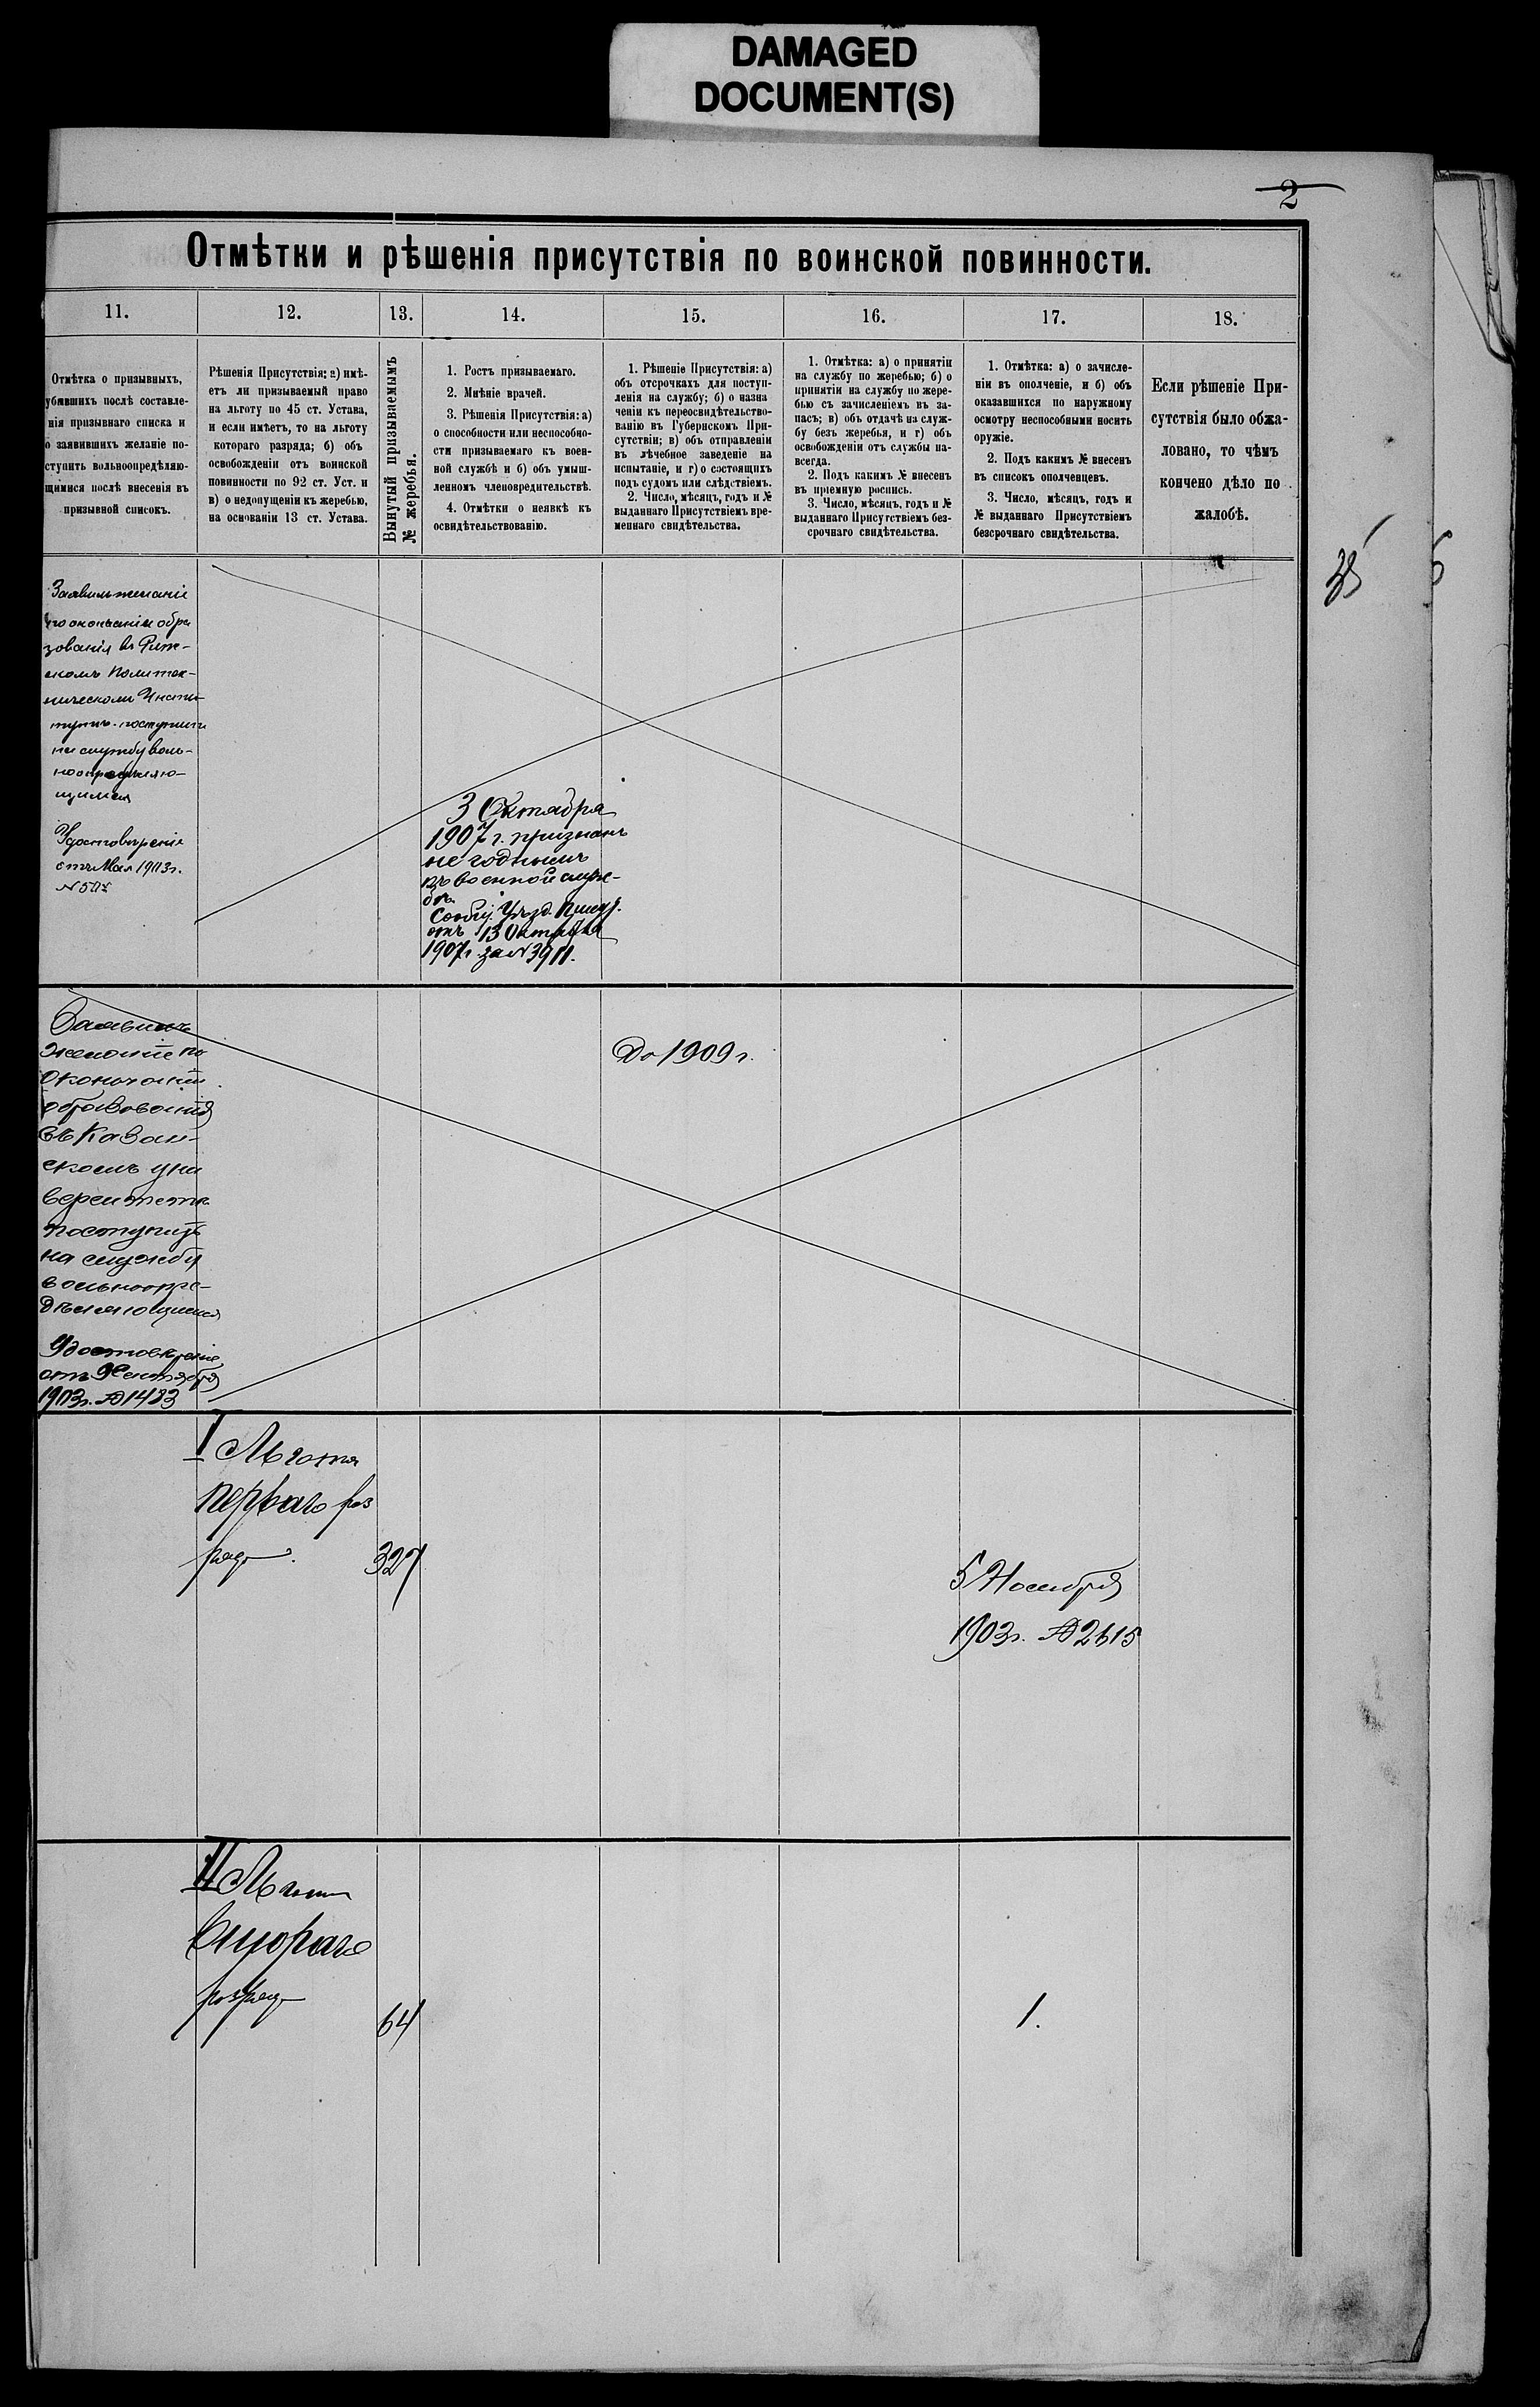 DAMAGED
DOCUMENT(S)
2
Отмѣтки и рѣшенія присутствія по воинской повинности.
11. 12. 13. 14. 15. 16. 17. 18.
Отмѣтка о призывныхъ,
убывшихъ послѣ составле-
нія призывнаго списка и
о заявившихъ желаніе по-
ступить вольноопредѣляю-
щимися послѣ внесенія въ
призывной списокъ.
Рѣшенія Присутствія: а) имѣ-
етъ ли призываемый право
на льготу по 45 ст. Устава,
и если имѣетъ, то на льготу
котораго разряда; б) объ
освобожденіи отъ воинской
повинности по 92 ст. Уст. и
в) о недопущеніи къ жеребью,
на основаніи 13 ст. Устава.
Вынутый призываемымъ
№ жеребья.
1. Ростъ призываемаго.
2. Мнѣніе врачей.
3. Рѣшенія Присутствія: а)
о способности или неспособно-
сти призываемаго къ воен-
ной службѣ и б) объ умыш-
ленномъ членовредительствѣ.
4. Отмѣтки о неявкѣ къ
освидѣтельствованію.
1. Рѣшеніе Присутствія: а)
объ отсрочкахъ для поступ-
ленія на службу; б) о назна
ченіи къ переосвидѣтельство-
ванію въ Губернскомъ При-
сутствіи; в) объ отправленіи
въ лѣчебное заведеніе на
испытаніе, и г) о состоящихъ
подъ судомъ или слѣдствіемъ.
2. Число, мѣсяцъ, годъ и №
выданнаго Присутствіемъ вре-
меннаго свидѣтельства.
1. Отмѣтка: а) о принятіи
на службу по жеребью; б) о
принятіи на службу по жере-
бью съ зачисленіемъ въ за-
пасъ; в) объ отдачѣ на служ-
бу безъ жеребья, и г) объ
освобожденіи отъ службы на-
всегда.
2. Подъ какимъ № внесенъ
въ пріемную роспись.
3. Число, мѣсяцъ, годъ и №
выданнаго Присутствіемъ без-
срочнаго свидѣтельства.
1. Отмѣтка: а) о зачисле-
ніи въ ополченіе, и б) объ
оказавшихся по наружному
осмотру неспособными носить
оружіе.
2. Подъ какимъ № внесенъ
въ списокъ ополченцевъ.
3. Число, мѣсяцъ, годъ и
№ выданнаго Присутствіемъ
безсрочнаго свидѣтельства.
Если рѣшеніе При-
сутствія было обжа-
ловано, то чѣмъ
кончено дѣло по
жалобѣ.
Заявилъ желаніе
по окончаніи обра
зованія въ Риж-
скомъ Политех-
ническомъ Инсти-
тутѣ поступить
на службу воль-
ноопредѣляю-
щимся
Удостовѣреніе
отъ Мая 1903 г.
3 Октября
1907 г. признанъ
не годнымъ
къ военной служ-
бѣ.
Сообщ. Уѣзд. Присут.
отъ 13 Октября
1907 г. за № 3911.
Заявилъ
желаніе по
окончаніи
образованія
въ Казан-
скомъ уни
верситетѣ
поступить
на службу
вольноопре-
дѣляющимся
Удостовѣреніе
отъ Сентября
1903 г. № 1483
До 1909 г.
I Льгота
перваго раз
ряда.
327
5 Ноября
1903 г. № 2615
II Льгота
Второго
разряда
64
1.